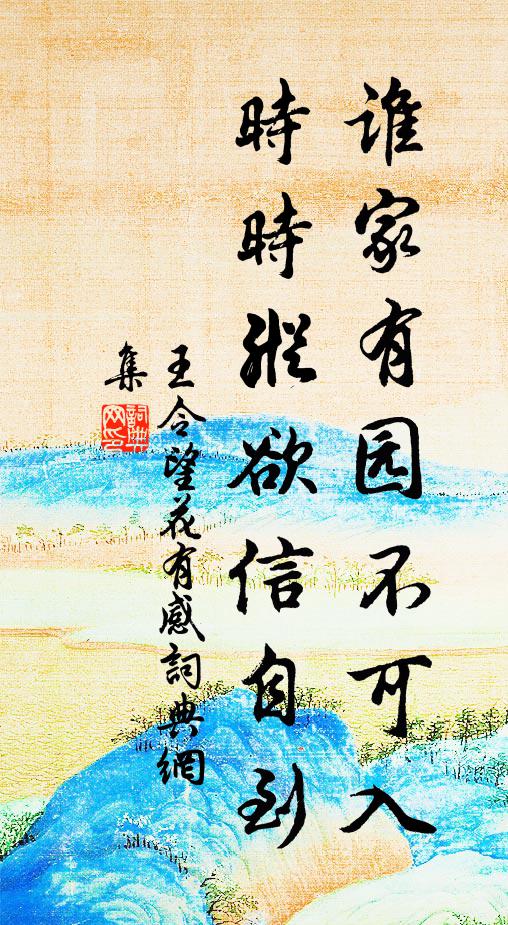 誰家有园不可入
時時縱欲信自到
王令望花有感詞典網
集
詞典網印